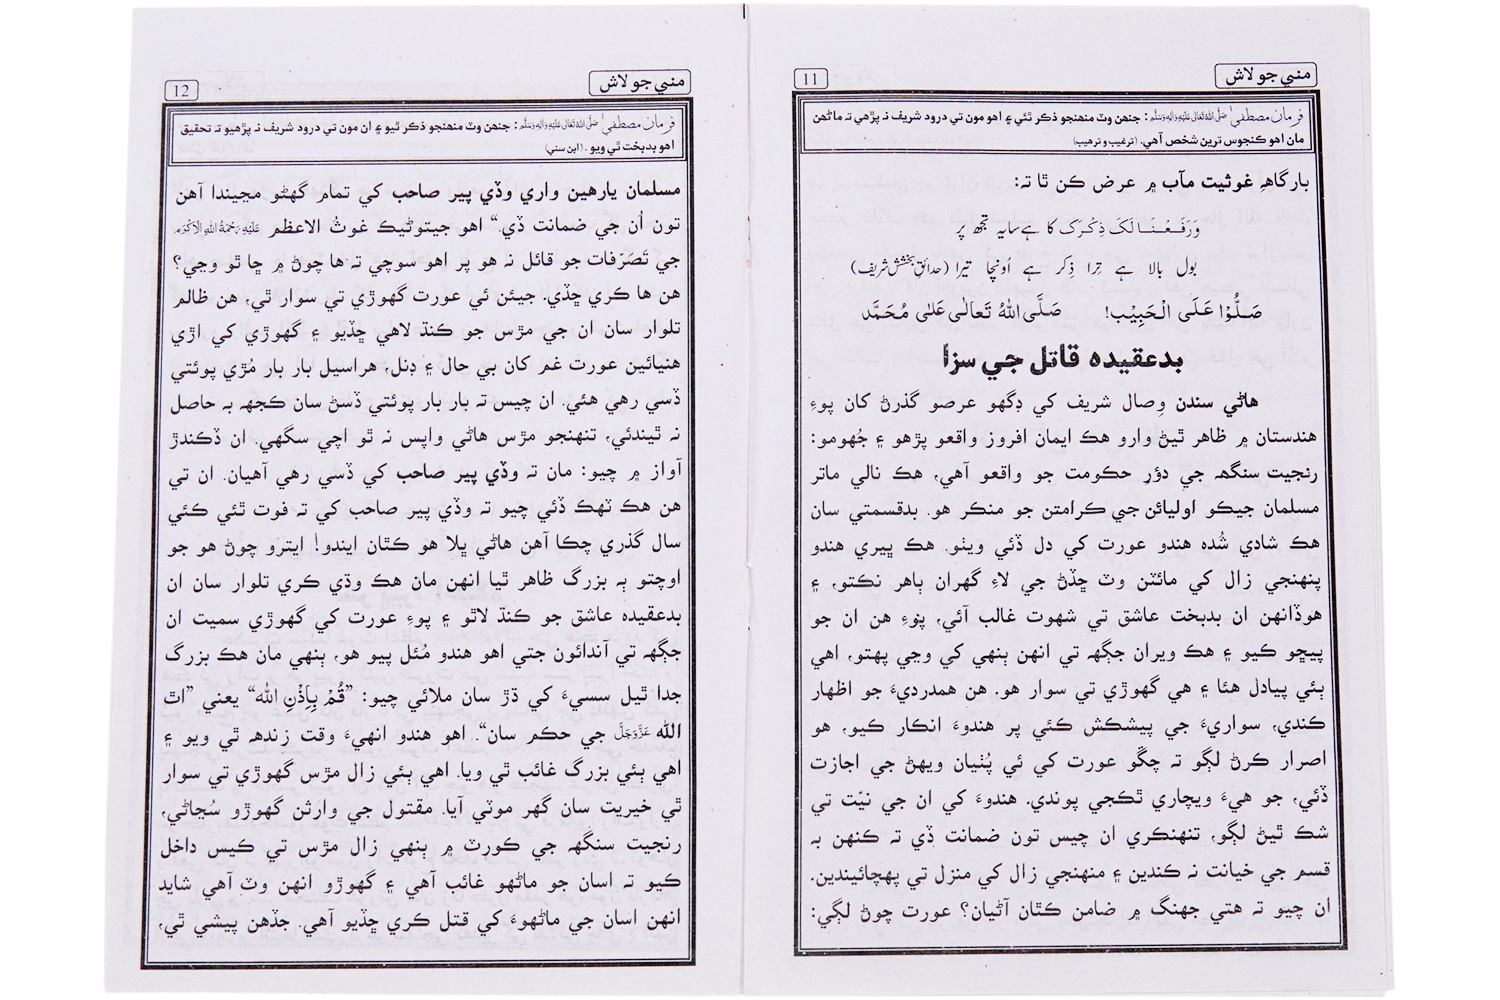 مني جو لاش
11
فرمان مصطفيٰ صَلَّى اللهُ تَعَالٰى عَلَيْهِ وَاٰلِهٖ وَسَلَّم : جنهن وٽ منهنجو ذڪر ٿئي ۽ اهو مون تي درود شريف نہ پڙهي تہ ماڻهن
مان اهو ڪنجوس ترين شخص آهي. (ترغيب و ترهيب)
بارگاھِ غوثيت مآب ۾ عرض ڪن ٿا تہ:
وَرَفَعْنَا لَکَ ذِکْرَک کا ہے سایہ تجھ پر
بول بالا ہے تِرا ذِکر ہے اُونچا تیرا (حدائقِ بخشش شریف)
صَلُّوْا عَلَى الْحَبِيْب! صَلَّى اللهُ تَعَالٰى عَلٰى مُحَمَّد
بدعقيده قاتل جي سزا
هاڻي سندن وِصال شريف کي ڊگهو عرصو گذرڻ کان پوءِ
هندستان ۾ ظاهر ٿيڻ وارو هڪ ايمان افروز واقعو پڙهو ۽ جُهومو:
رنجيت سنگهہ جي دؤرِ حڪومت جو واقعو آهي، هڪ نالي ماتر
مسلمان جيڪو اوليائن جي ڪرامتن جو منڪر هو. بدقسمتي سان
هڪ شادي شُده هندو عورت کي دل ڏئي ويٺو. هڪ ڀيري هندو
پنهنجي زال کي مائٽن وٽ ڇڏڻ جي لاءِ گهران ٻاهر نڪتو، ۽
هوڏانهن ان بدبخت عاشق تي شهوت غالب آئي، پوءِ هن ان جو
پيڇو ڪيو ۽ هڪ ويران جڳهہ تي انهن ٻنهي کي وڃي پهتو، اهي
ٻئي پيادل هئا ۽ هي گهوڙي تي سوار هو. هن همدرديءَ جو اظهار
ڪندي، سواريءَ جي پيشڪش ڪئي پر هندوءَ انڪار ڪيو، هو
اصرار ڪرڻ لڳو تہ چڱو عورت کي ئي پُٺيان ويهڻ جي اجازت
ڏئي، جو هيءَ ويچاري ٿڪجي پوندي. هندوءَ کي ان جي نيّت تي
شڪ ٿيڻ لڳو، تنهنڪري ان چيس تون ضمانت ڏي تہ ڪنهن بہ
قسم جي خيانت نہ ڪندين ۽ منهنجي زال کي منزل تي پهچائيندين.
ان چيو تہ هتي جهنگ ۾ ضامن ڪٿان آڻيان؟ عورت چوڻ لڳي:
مني جو لاش
12
فرمان مصطفيٰ صَلَّى اللهُ تَعَالٰى عَلَيْهِ وَاٰلِهٖ وَسَلَّم : جنهن وٽ منهنجو ذڪر ٿيو ۽ ان مون تي درود شريف نہ پڙهيو تہ تحقيق
اهو بدبخت ٿي ويو . (ابن سني)
مسلمان يارهين واري وڏي پير صاحب کي تمام گهڻو مڃيندا آهن
تون اُن جي ضمانت ڏي.“ اهو جيتوڻيڪ غوثُ الاعظم عَلَيْهِ رَحْمَةُ اللهِ الْاَكْرَم
جي تَصَرّفات جو قائل نہ هو پر اهو سوچي تہ ها چوڻ ۾ ڇا ٿو وڃي؟
هن ها ڪري ڇڏي. جيئن ئي عورت گهوڙي تي سوار ٿي، هن ظالم
تلوار سان ان جي مڙس جو ڪنڌ لاهي ڇڏيو ۽ گهوڙي کي اڙي
هنيائين عورت غم کان بي حال ۽ ڊنل، هراسيل بار بار مُڙي پوئتي
ڏسي رهي هئي. ان چيس تہ بار بار پوئتي ڏسڻ سان ڪجهہ بہ حاصل
نہ ٿيندئي، تنهنجو مڙس هاڻي واپس نہ ٿو اچي سگهي. ان ڏڪندڙ
آواز ۾ چيو: مان تہ وڏي پير صاحب کي ڏسي رهي آهيان. ان تي
هن هڪ ٽهڪ ڏئي چيو تہ وڏي پير صاحب کي تہ فوت ٿئي ڪئي
سال گذري چڪا آهن هاڻي ڀلا هو ڪٿان ايندو! ايترو چوڻ هو جو
اوچتو ٻہ بزرگ ظاهر ٿيا انهن مان هڪ وڌي ڪري تلوار سان ان
بدعقيده عاشق جو ڪنڌ لاٿو ۽ پوءِ عورت کي گهوڙي سميت ان
جڳهہ تي آندائون جتي اهو هندو مُئل پيو هو، ٻنهي مان هڪ بزرگ
جدا ٿيل سسيءَ کي ڌڙ سان ملائي چيو: ”قُمْ بِاِذْنِ الله“ يعني ”اٿ
الله عَزَّوَجَلَّ جي حڪم سان“. اهو هندو انهيءَ وقت زندهہ ٿي ويو ۽
اهي ٻئي بزرگ غائب ٿي ويا. اهي ٻئي زال مڙس گهوڙي تي سوار
ٿي خيريت سان گهر موٽي آيا. مقتول جي وارثن گهوڙو سُڃاڻي،
رنجيت سنگهہ جي ڪورٽ ۾ ٻنهي زال مڙس تي ڪيس داخل
ڪيو تہ اسان جو ماڻهو غائب آهي ۽ گهوڙو انهن وٽ آهي شايد
انهن اسان جي ماڻهوءَ کي قتل ڪري ڇڏيو آهي. جڏهن پيشي ٿي،